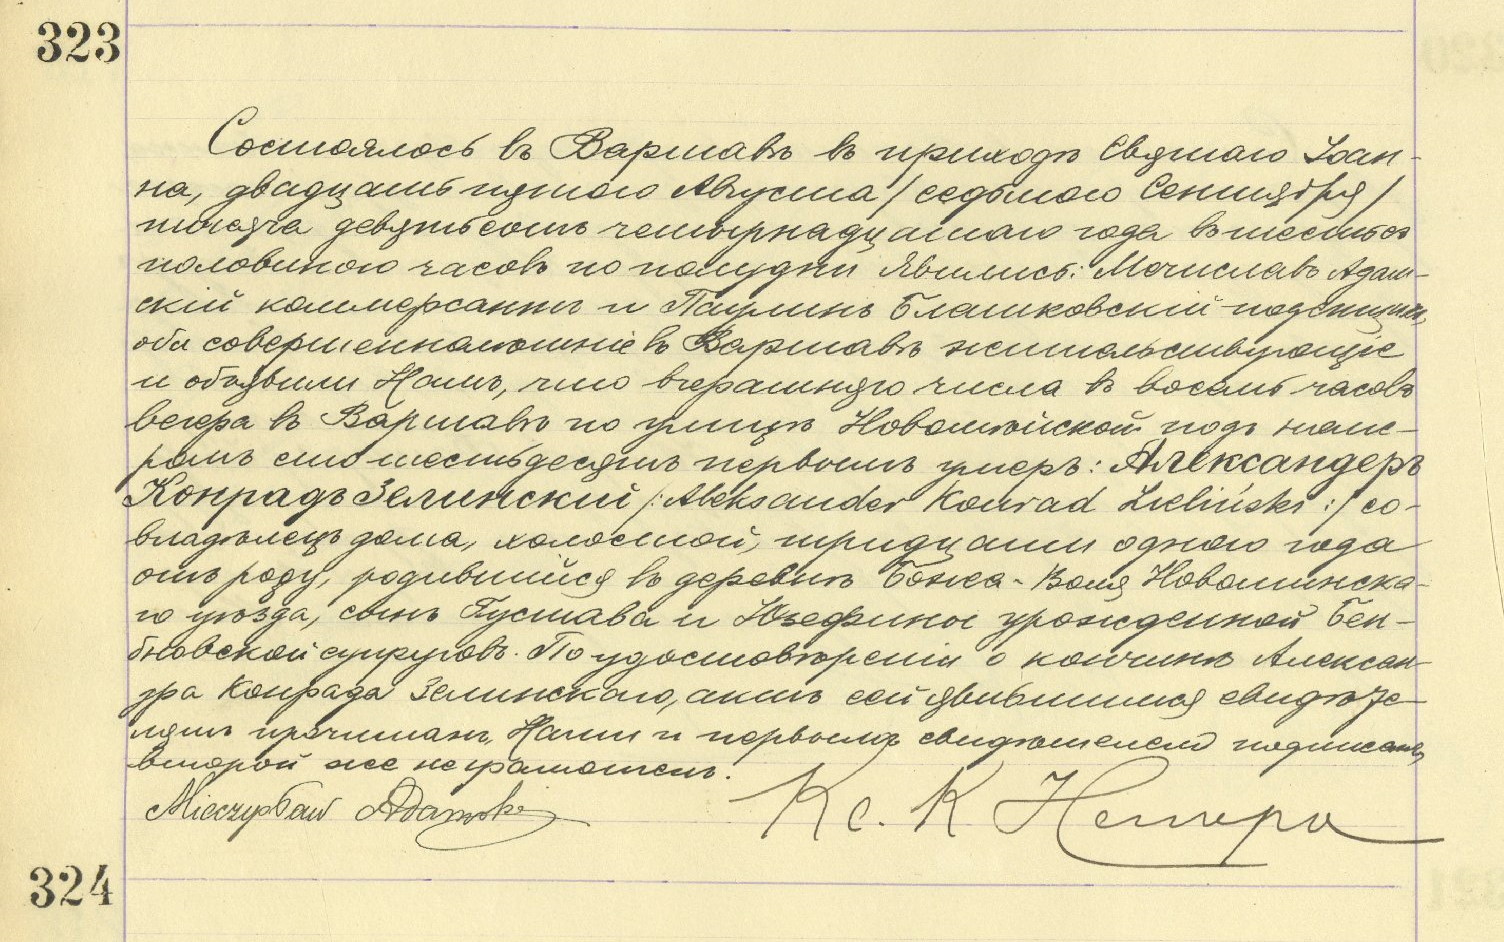 323
Состоялось въ Варшавѣ въ приходѣ Святаго Іоан-
на, двадцать пятаго Августа / седьмаго Сентября /
тысяча девятьсотъ четырнадцатаго года въ шесть съ
половиною часовъ по полудни Явились: Мечиславъ Адам-
скій коммерсантъ и Паулинъ Блашковскій
оба совершеннолѣтніе въ Варшавѣ жительствующіе
и объявили Намъ, что вчерашняго числа въ восемь часовъ
вечера въ Варшавѣ по улицѣ Новомѣйской подъ номе-
ромъ сто шестьдесятъ первымъ умеръ: Александеръ
Конрадъ Зелинскій /: Aleksander Konrad Zieliński :/ со-
владѣлецъ дома, холостой, тридцати одного года
отъ роду, родившійся въ деревнѣ Божа-Воля Новоминска-
го уѣзда, сынъ Густава и Юзефины урожденной Бен-
бновской супруговъ. По удостовѣреніи о кончинѣ Алексан-
дра Конрада Зелинскаго, актъ сей явившимся свидѣте-
лямъ прочитанъ, Нами и первымъ свидѣтелемъ подписанъ,
второй же неграмотенъ.
Mieczysław Adamski Кс. К
324